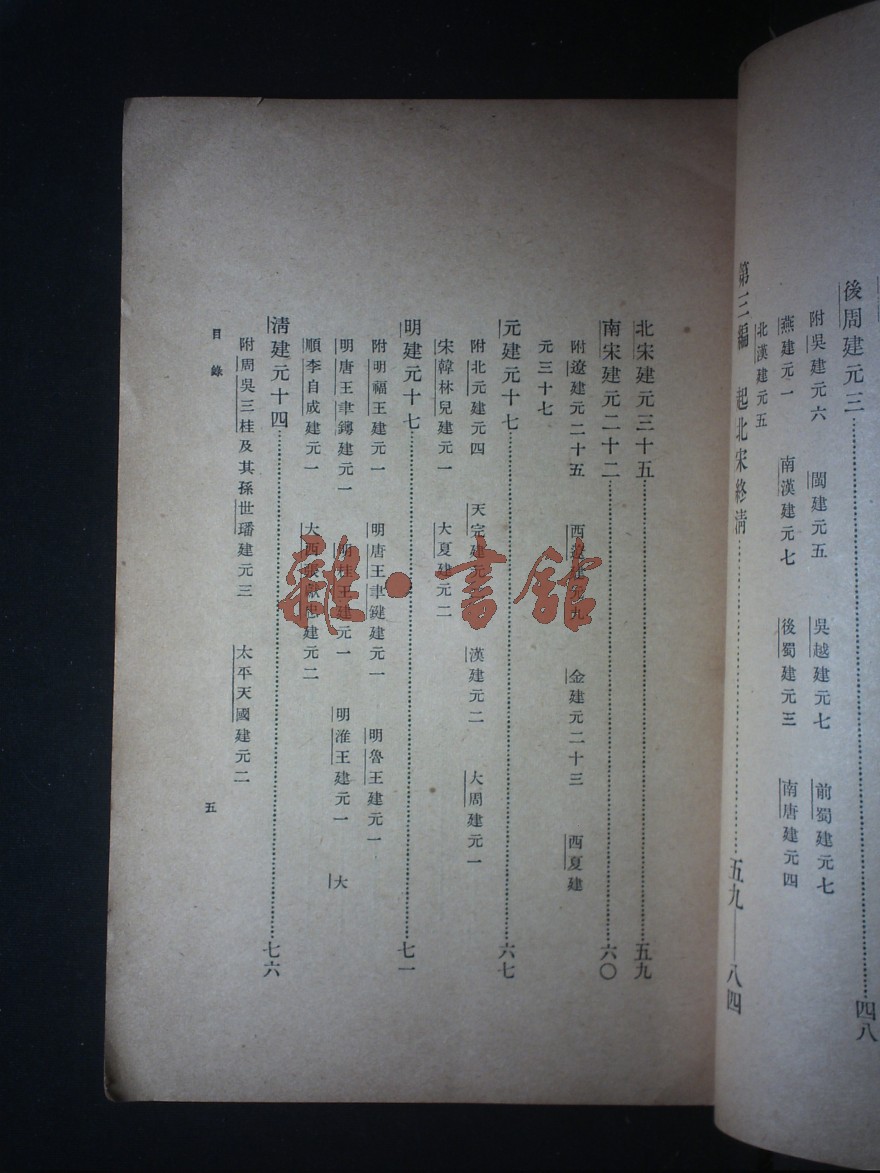 後周建元三……四八
附吳建元六　閩建元五　吳越建元七　前蜀建元七
燕建元一　南漢建元七　後蜀建元三　南唐建元四
北漢建元五
第三編　起北宋終清……五九——八四
北宋建元三十五……五九
南宋建元二十二……六〇
附遼建元二十五　西遼建元九　金建元二十三　西夏建
元三十七
元建元十七……六七
附北元建元四　天完建元　漢建元二　大周建元一
宋韓林兒建元一　大夏建元二
明建元十七……七一
附明福王建元一　明唐王聿鍵建元一　明魯王建元一
明唐王聿𨮁建元一　明桂王建元一　明淮王建元一　大
順李自成建元一　大西張獻忠建元二
清建元十四……七六
附周吳三桂及其孫世璠建元三　太平天國建元二
目錄
五
雜·書館